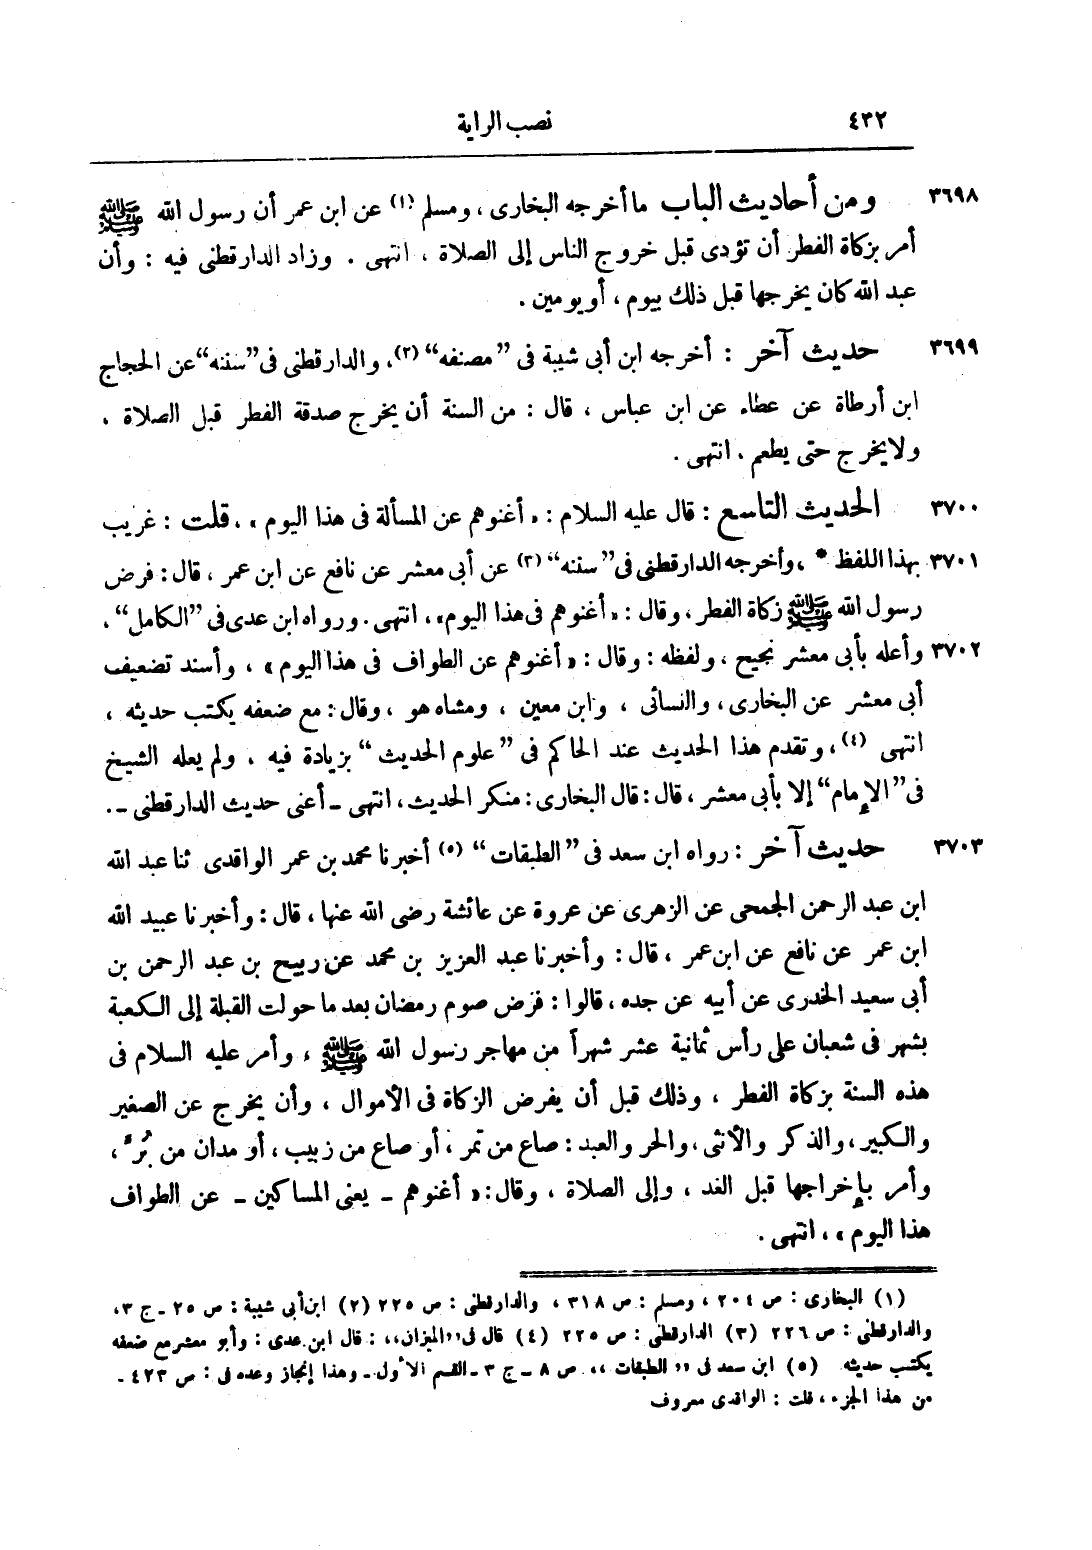 ٤٣٢ نصب الراية
٣٦٩٨ ومن أحاديث الباب ما أخرجه البخارى، ومسلم (١) عن ابن عمر أن رسول الله ﷺ
أمر بزكاة الفطر أن تؤدى قبل خروج الناس إلى الصلاة، انتهى. وزاد الدارقطنى فيه: وأن
عبد الله كان يخرجها قبل ذلك بيوم، أو يومين.
٣٦٩٩ حديث آخر: أخرجه ابن أبى شيبة فى "مصنفه" (٢)، والدارقطنى فى "سننه" عن الحجاج
ابن أرطاة عن عطاء عن ابن عباس، قال: من السنة أن يخرج صدقة الفطر قبل الصلاة،
ولا يخرج حتى يطعم، انتهى.
٣٧٠٠ الحديث التاسع: قال عليه السلام: «أغنوهم عن المسألة فى هذا اليوم»، قلت: غريب
٣٧٠١ بهذا اللفظ *، وأخرجه الدارقطنى فى "سننه" (٣) عن أبى معشر عن نافع عن ابن عمر، قال: فرض
رسول الله ﷺ زكاة الفطر، وقال: «أغنوهم فى هذا اليوم»، انتهى. ورواه ابن عدى فى "الكامل"،
٣٧٠٢ وأعله بأبى معشر نجيح، ولفظه: وقال: «أغنوهم عن الطواف فى هذا اليوم»، وأسند تضعيف
أبى معشر عن البخارى، والنسائى، وابن معين، ومشاه هو، وقال: مع ضعفه يكتب حديثه،
انتهى (٤)، وتقدم هذا الحديث عند الحاكم فى "علوم الحديث" بزيادة فيه، ولم يعله الشيخ
فى "الإمام" إلا بأبى معشر، قال: قال البخارى: منكر الحديث، انتهى ـ أعنى حديث الدارقطنى ـ.
٣٧٠٣ حديث آخر: رواه ابن سعد فى "الطبقات" (٥) أخبرنا محمد بن عمر الواقدى ثنا عبد الله
ابن عبد الرحمن الجمحى عن الزهرى عن عروة عن عائشة رضى الله عنها، قال: وأخبرنا عبيد الله
ابن عمر عن نافع عن ابن عمر، قال: وأخبرنا عبد العزيز بن محمد عن ربيح بن عبد الرحمن بن
أبى سعيد الخدرى عن أبيه عن جده، قالوا: فرض صوم رمضان بعد ما حولت القبلة إلى الكعبة
بشهر فى شعبان على رأس ثمانية عشر شهراً من مهاجر رسول الله ﷺ، وأمر عليه السلام فى
هذه السنة بزكاة الفطر، وذلك قبل أن يفرض الزكاة فى الأموال، وأن يخرج عن الصغير
والكبير، والذكر والأنثى، والحر والعبد: صاع من تمر، أو صاع من زبيب، أو مدان من بُرّ،
وأمر بإخراجها قبل الغد، وإلى الصلاة، وقال: «أغنوهم ـ يعنى المساكين ـ عن الطواف
هذا اليوم»، انتهى.
(١) البخارى: ص ٢٠٤، ومسلم: ص ٣١٨، والدارقطنى: ص ٢٢٥ (٢) ابن أبى شيبة: ص ٢٥ ـ ج ٣،
والدارقطنى: ص ٢٢٦ (٣) الدارقطنى: ص ٢٢٥ (٤) قال فى "الميزان": قال ابن عدى: وأبو معشر مع ضعفه
يكتب حديثه (٥) ابن سعد فى "الطبقات" ص ٨ ـ ج ٣ ـ القسم الأول ـ وهذا إنجاز وعده فى: ص ٤٢٣ ـ
من هذا الجزء، قلت: الواقدى معروف